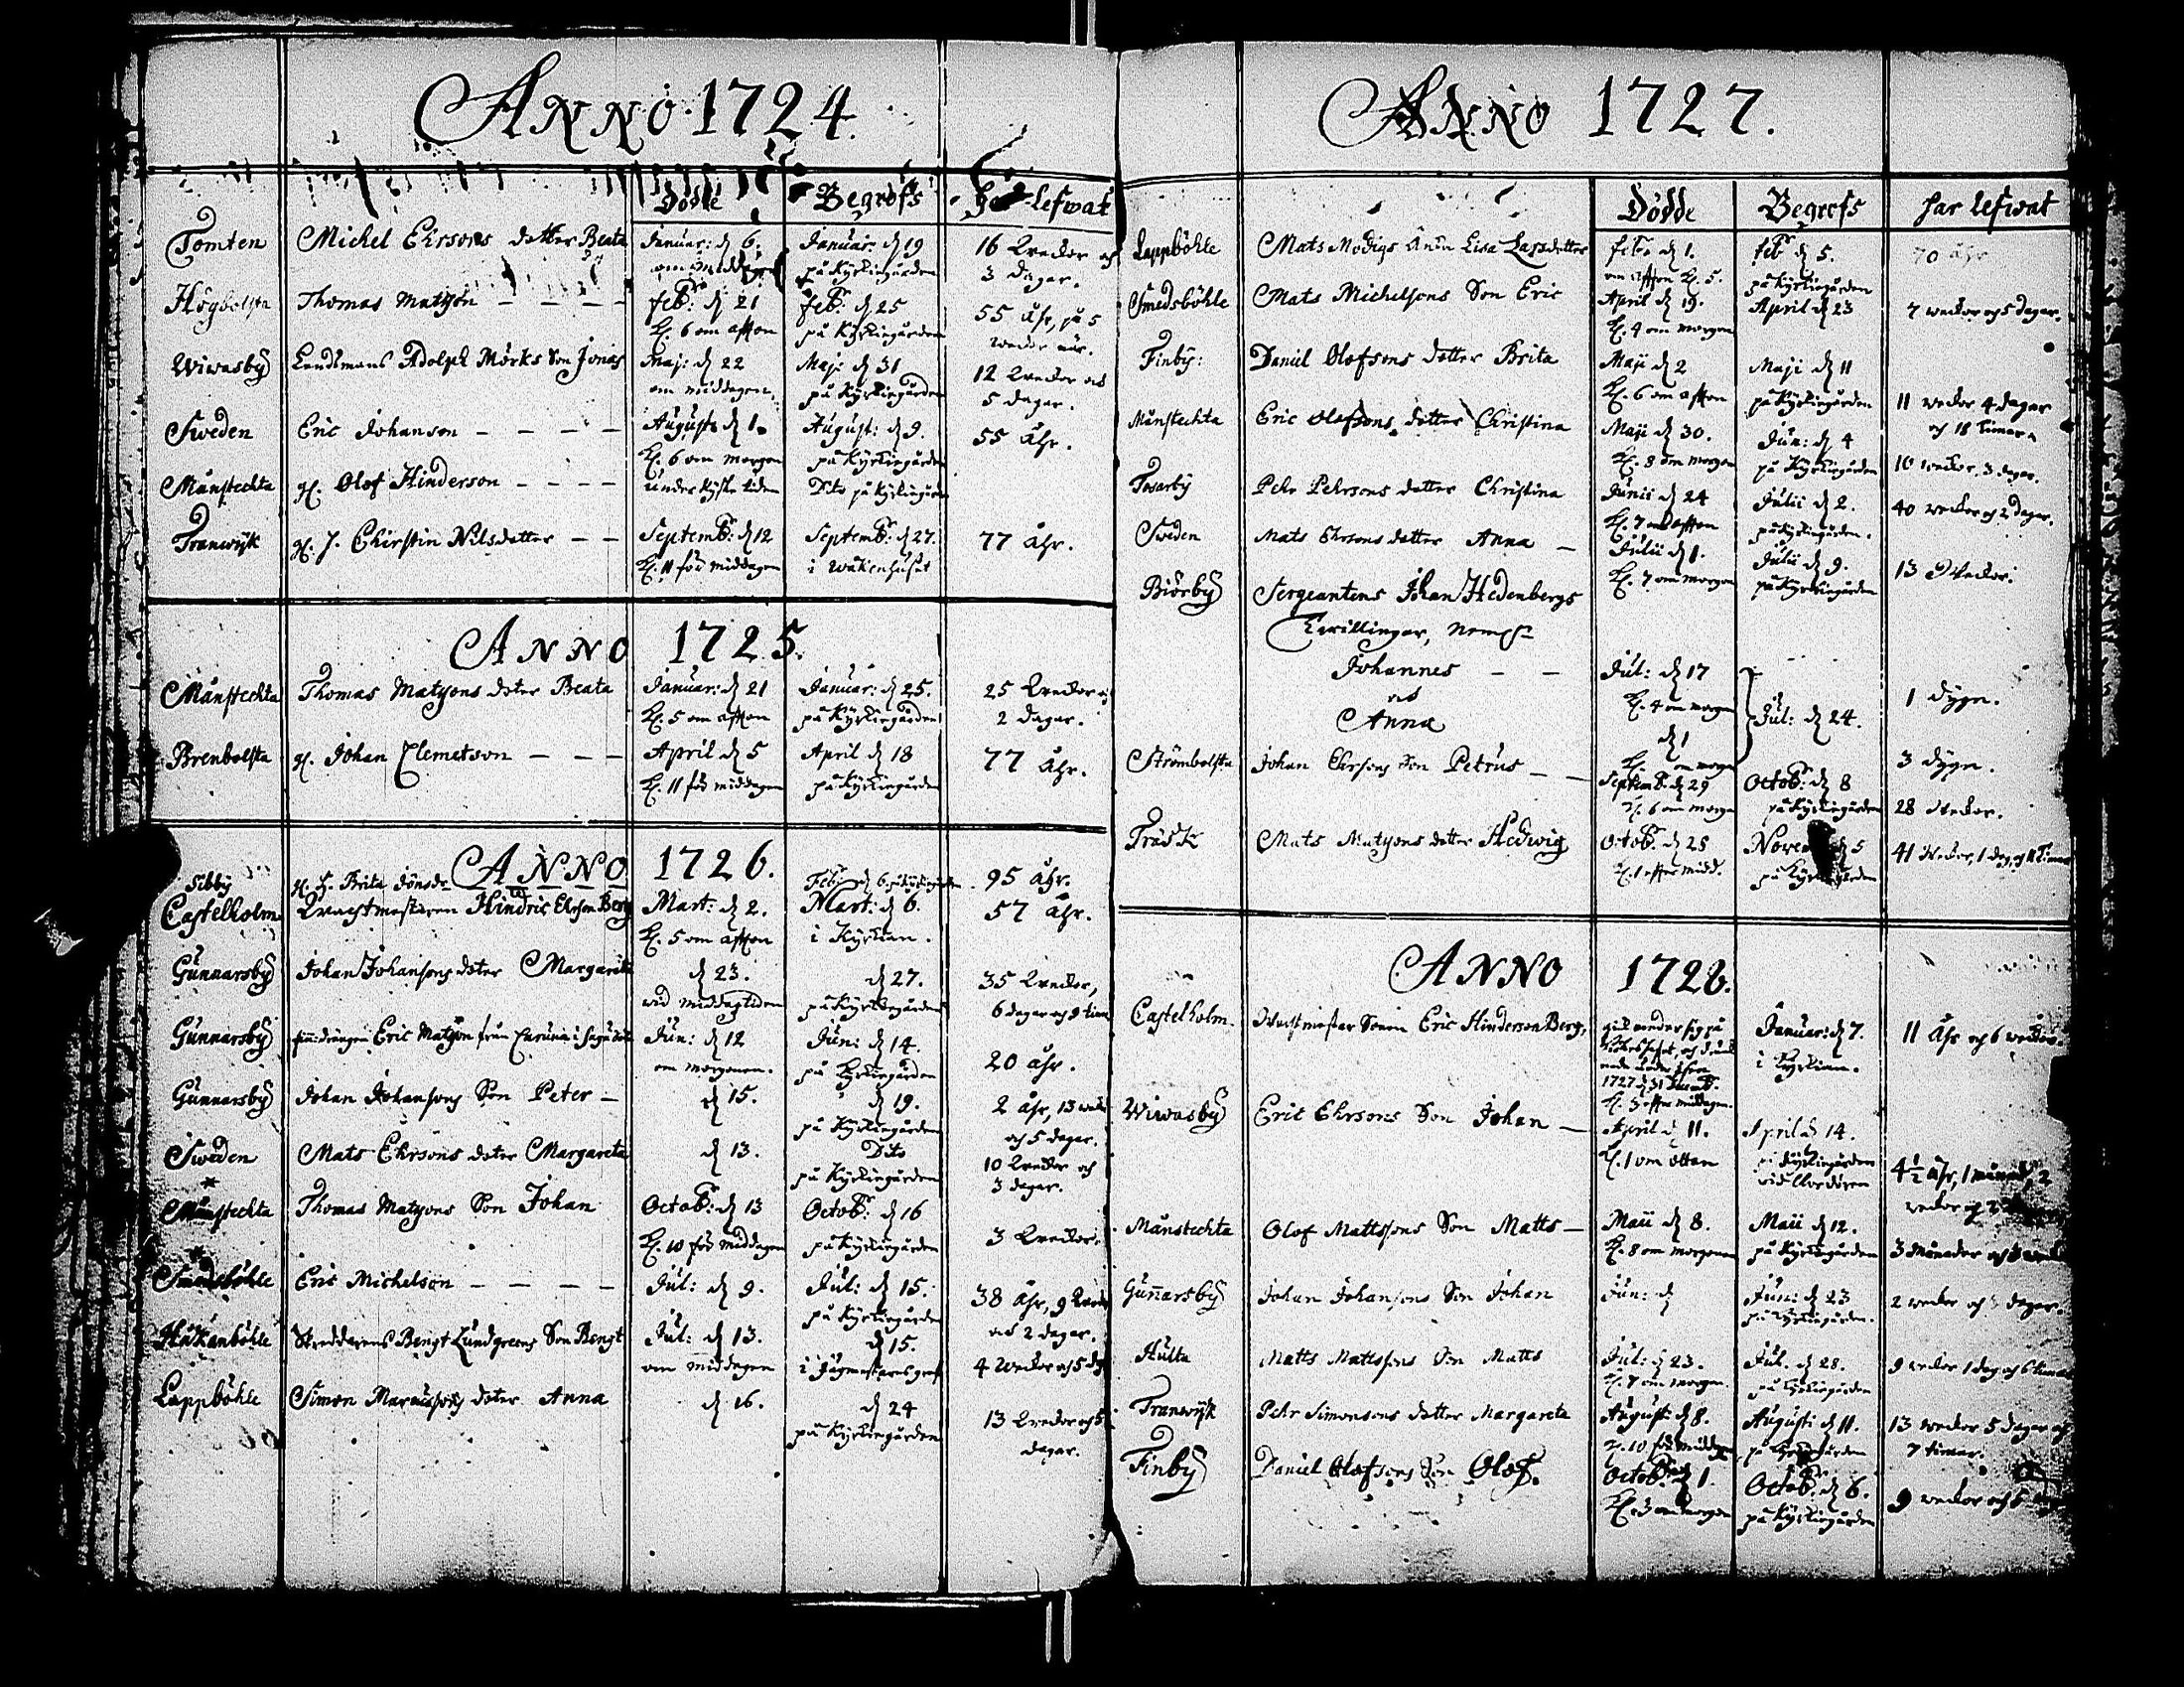 ANNO 1724.
Dödde Begrofs Har lefwat
Tomten Michel Ehrsons dotter Beata Januar: d 6. Januar: d 19 16 Weckor och
om middagen på Kyrkiogården 3 dagar.
Högbolsta Thomas Matzson – – – – Feb: d 21 Feb: d 25 55 åhr, på 5
Kl. 6 om affton på Kyrkiogården weckor när.
Wiwasby Lendsmans Adolph Mörks Son Jonas Maji d 22 Maji d 31 12 Weckor och
om middagen på Kyrkiogården 5 dagar.
Sweden Eric Johanson – – – – August: d 1. August: d 9. 55 åhr.
Kl. 6 om morgon på Kyrkiogården
Månstechta H. Olof Hinderson – – – – under Kyrkie tiden Dito på Kyrkiogården
Tranwijk H. J. Chirstin Nilsdotter – – Septemb: d 12 Septemb: d 27. 77 åhr.
Kl. 11 för middagen i Wåkenhuset
ANNO 1725.
Månstechta Thomas Matzons doter Beata Januar: d 21 Januar: d 25. 25 Weckor och
Kl. 5 om affton på Kyrkiogården 2 dagar.
Brenbolsta H. Johan Clemetson – – – April d 5 April d 18 77 åhr.
Kl. 11 för middagen på Kyrkiogården
ANNO 1726.
Sibby H. H. Brita Jönsdr Feb: d 6 på Kyrkiogården 95 åhr.
Castelholm Wachtmestaren Hindric Ehrson Berg Mart: d 2. Mart: d 6. 57 åhr.
Kl. 5 om affton i Kyrkian.
Gunnarsby Johan Johansons doter Margarita d 23. d 27. 35 Weckor,
wid middagstiden på Kyrkiogården 6 dagar och 9 timar
Gunnarsby Eric Matzon från Jun: d 12 Jun: d 14. 20 åhr.
om morgonen. på Kyrkiogården
Gunnarsby Johan Johansons Son Peter – d 15. d 19. 2 åhr, 13 weckor
på Kyrkiogården och 5 dagar.
Sweden Mats Ehrsons doter Margareta d 13. Dito 10 Weckor och
på Kyrkiogården 3 dagar.
Månstechta Thomas Matzons Son Johan Octob: d 13 Octob: d 16 3 Weckor.
Kl. 10 för middagen på Kyrkiogården
Smedsböhle Eric Michelson – – – – Jul: d 9. Jul: d 15. 38 åhr, 9 Weckor
på Kyrkiogården och 2 dagar.
Håkanböhle Skreddarens Bengt Lundgreens Son Bengt Jul: d 13. d 15. 4 Weckor och 5 dagar
om middagen i
Lappböhle Simon Marcussons doter Anna d 16. d 24 13 Weckor och 5
på Kyrkiogården dagar.
ANNO 1727.
Dödde Begrofs har lefwat
Lappböhle Mats Modigs Änka Lisa Larsdotter Feb: d 1. Feb d 5. 70 åhr
om affton Kl. 5. på Kyrkiogården
Smedsböhle Mats Michelsons Son Eric April d 19. April d 23 7 weckor och 5 dagar.
Kl. 4 om morgon
Finby: Daniel Olofsons dotter Brita Maji d 2 Maji d 11 11 weckor 4 dagar
Kl. 6 om affton på Kyrkiogården och 18 timar
Månstechta Eric Olofsons dotter Christina Maji d 30. Jun: d 4 10 weckor. 3 dagar.
Kl. 8 om morgon på Kyrkiogården
Tosarby Pehr Pehrsons dotter Christina Junii d 24 Julii d 2. 40 weckor och 2 dagar.
Kl. 7 om affton på Kyrkiogården.
Sweden Mats Ehrsons dotter Anna – Julii d 1. Julii d 9. 13 Weckor.
Kl. 7 om morgon på Kyrkiogården
Biörby Sergeantens Johan Hedenbergs
Twillingar, nempl:
Johannes – – Jul: d 17 1 dygn.
och Kl. 4 om morgon Jul: d 24.
Anna d 3 dygn.
Kl. om morgon
Strömbolsta Johan Ehrsons Son Petrus – – Septemb: d 29 Octob: d 8 28 Weckor.
Kl. 6 om morgon på Kyrkiogården
Träsk Mats Matzons dotter Hedwig Octob: d 25 Novemb d 5 41 Weckor, 1 dag och 11 timar
Kl. 1 effter midd. på Kyrkiogården
ANNO 1728.
Castelholm. Wachtmestar Sonen Eric Hinderson Berg, gick neder sig på Januar: d 7. 11 åhr och 6 weckor.
i Kyrkian.
1727 d 31 Decemb:
Kl. 3 effter middagen.
Wiwasby Eric Ehrsons Son Johan – April d 11. April d 14. 4½ åhr, 1 månad, 2
Kl. 1 om Ottan på Kyrkiogården weckor och 2
Månstechta Olof Mattssons Son Matts – Maii d 8. Maii d 12. 3 Månader och
Kl. 8 om morgonen på Kyrkiogården
Gunnarsby Johan Johansons Son Johan Jun: d Jun: d 23 2 weckor och dagar.
på Kyrkiogården.
Hulta Matts Mattssons Son Matts Jul: d 23. Jul. d 28. 9 weckor 1 dag och 6 timar
Kl. 7 om morgon. på Kyrkiogården
Tranwijk Pehr Simonsons dotter Margareta Augusti d 8. Augusti d 11. 13 weckor 5 dagar och
Kl. 10 för middagen på Kyrkiogården 7 timar.
Finby Daniel Olofsons Son Olof. Octob: d 1. Octob: d 6. 9 weckor och
Kl. 3 om morgon på Kyrkiogården